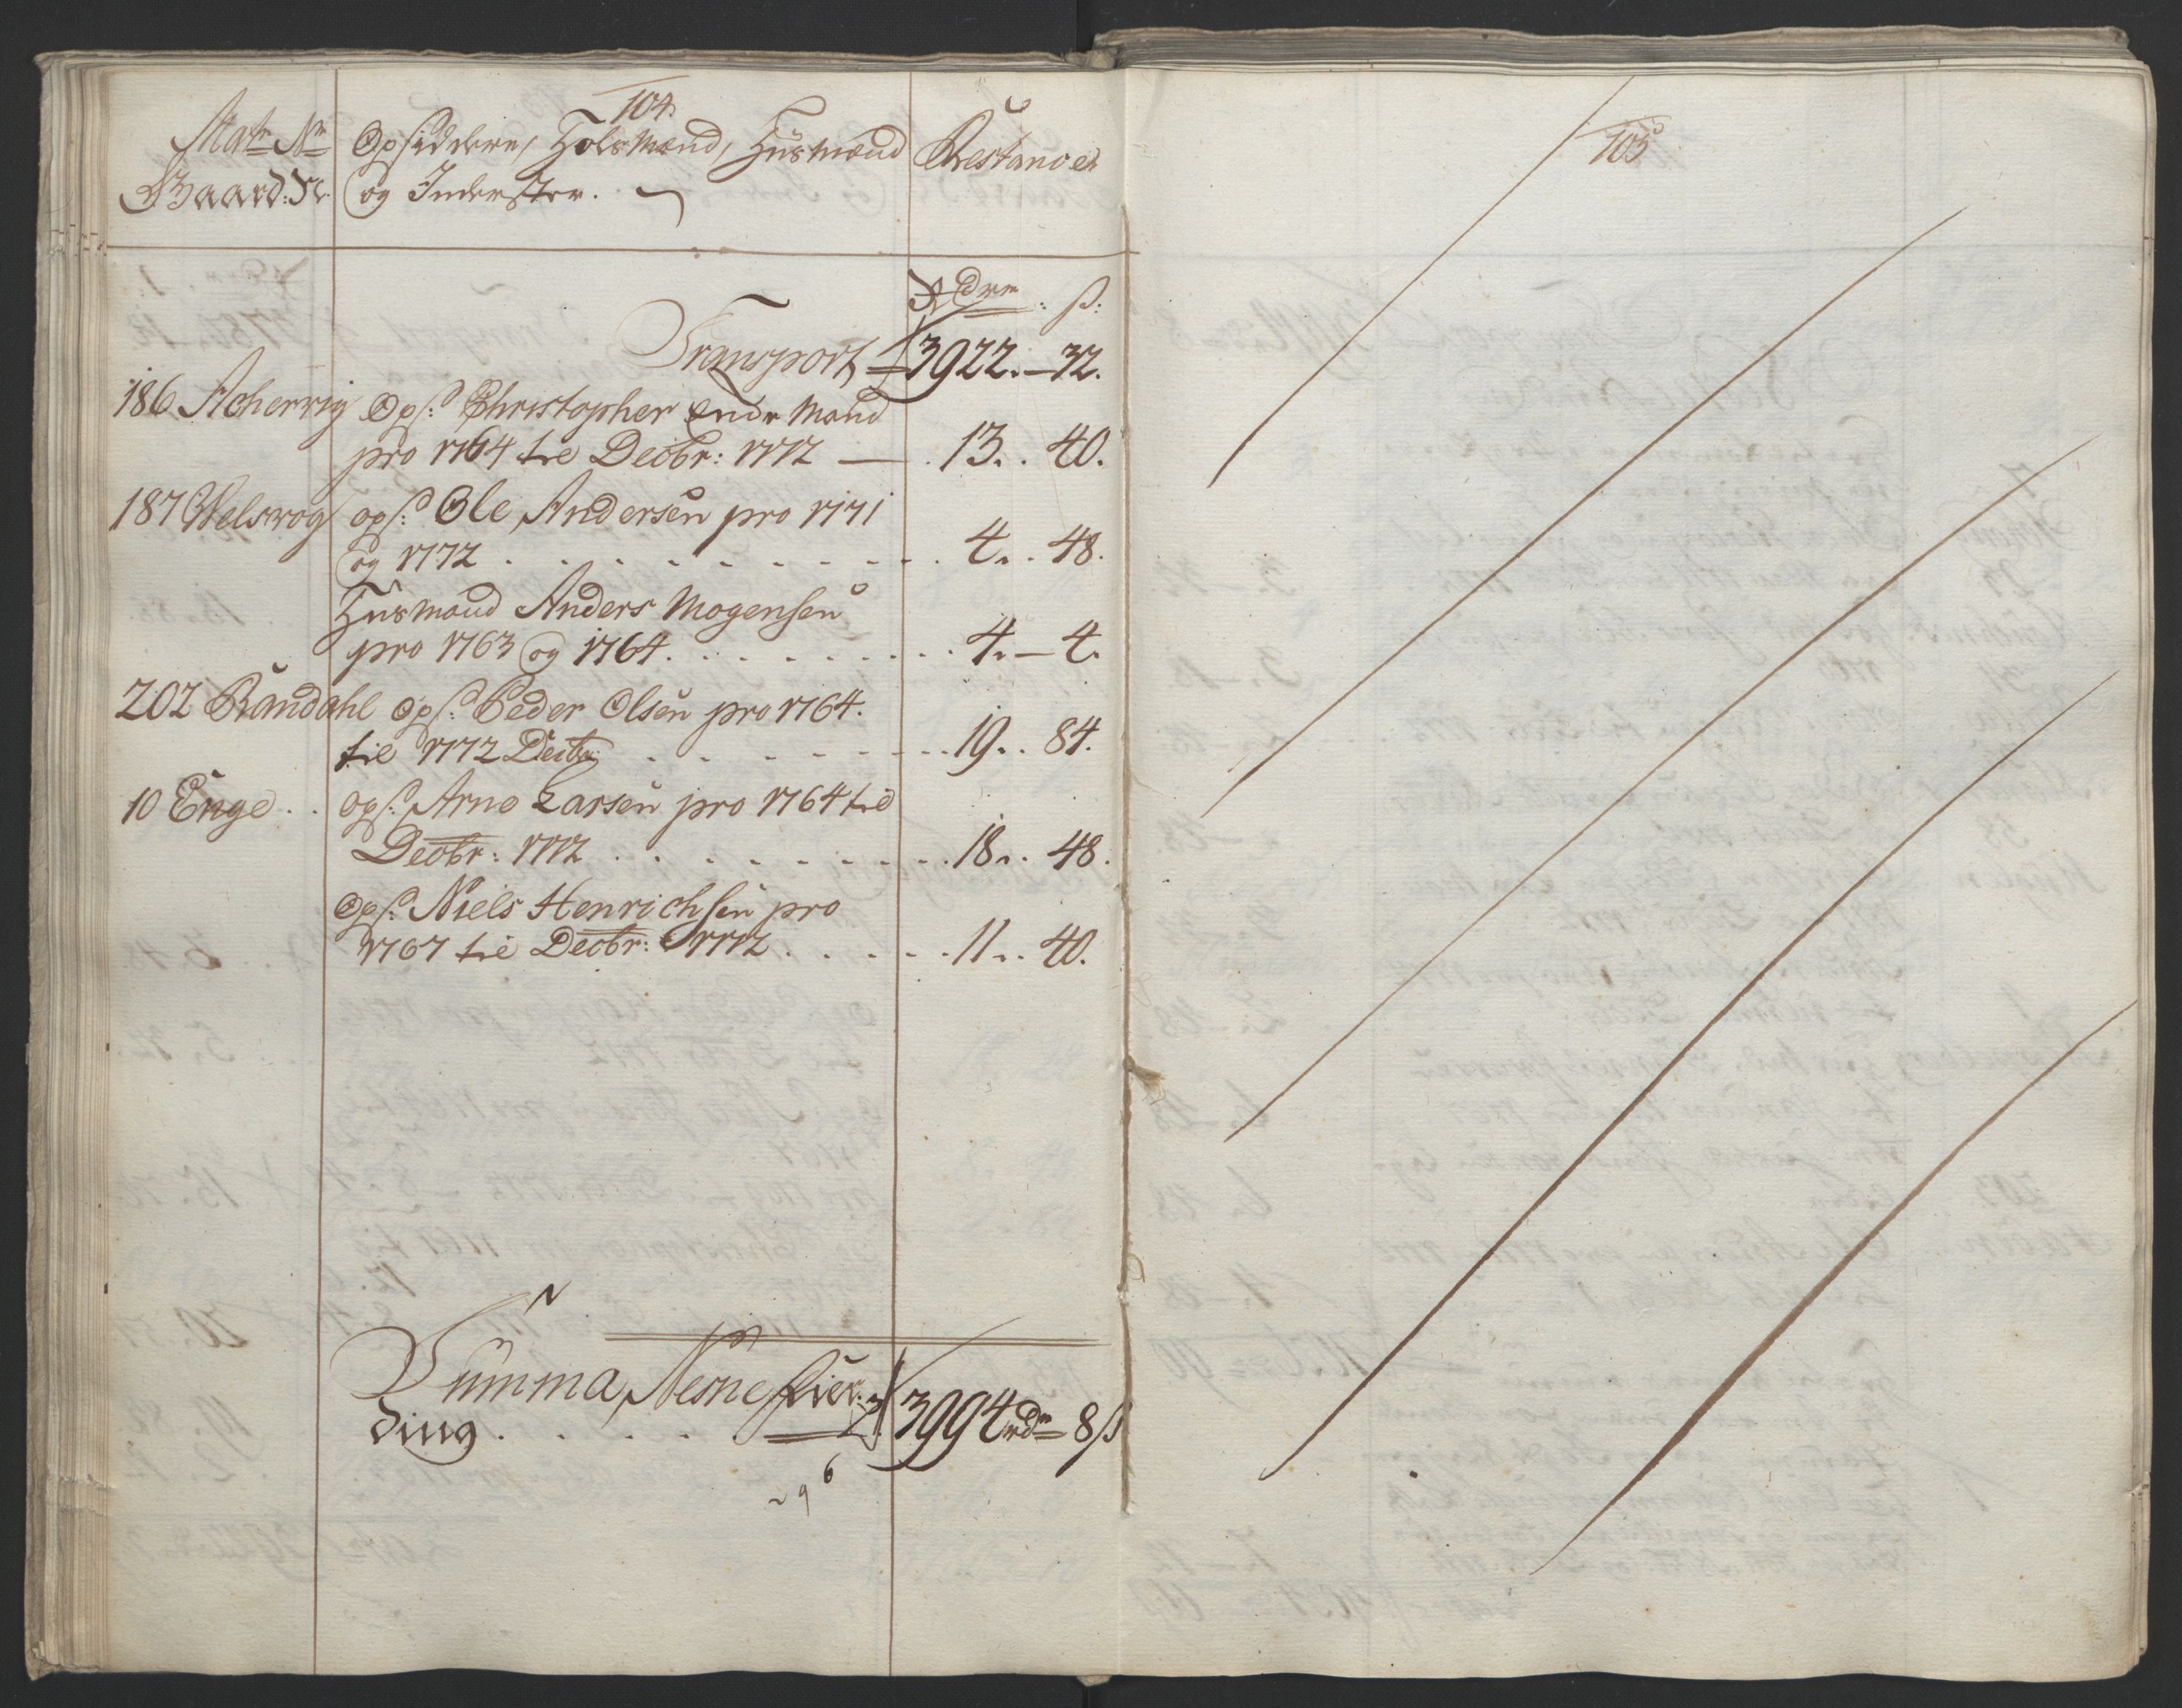 104.
Matr: Nr Opsiddere, Holsmænd, Huusmænd Restancer
Gaard: Nr og Inderster.
Rdr ß:
Transport 3922.–32.
186 Acherviig Ops: Christopher Endr Mand
pro 1764 til Decbr: 1772 — 13. . 40.
187 Welsvog ops: Ole Andersen pro 1771
og 1772 . . . . . . . . . 4. . 48.
Huusmand Anders Mogensen
pro 1763 og 1764. . . . . . . . 4.–4.
202 Randahl Ops: Peder Olsen pro 1764.
til 1772 Decbr: . . . . . . . 19. . 84.
10 Enge . . Ops: Arne Larsen pro 1764 til
Decbr: 1772 . . . . . . . . 18. . 48.
Ops: Niels Henrichsen pro
1767 til Decbr: 1772 . . . . . 11. . 40.
Summa Nesne Fier-
ding . . . . 3994 rdr 8 ß
96
105